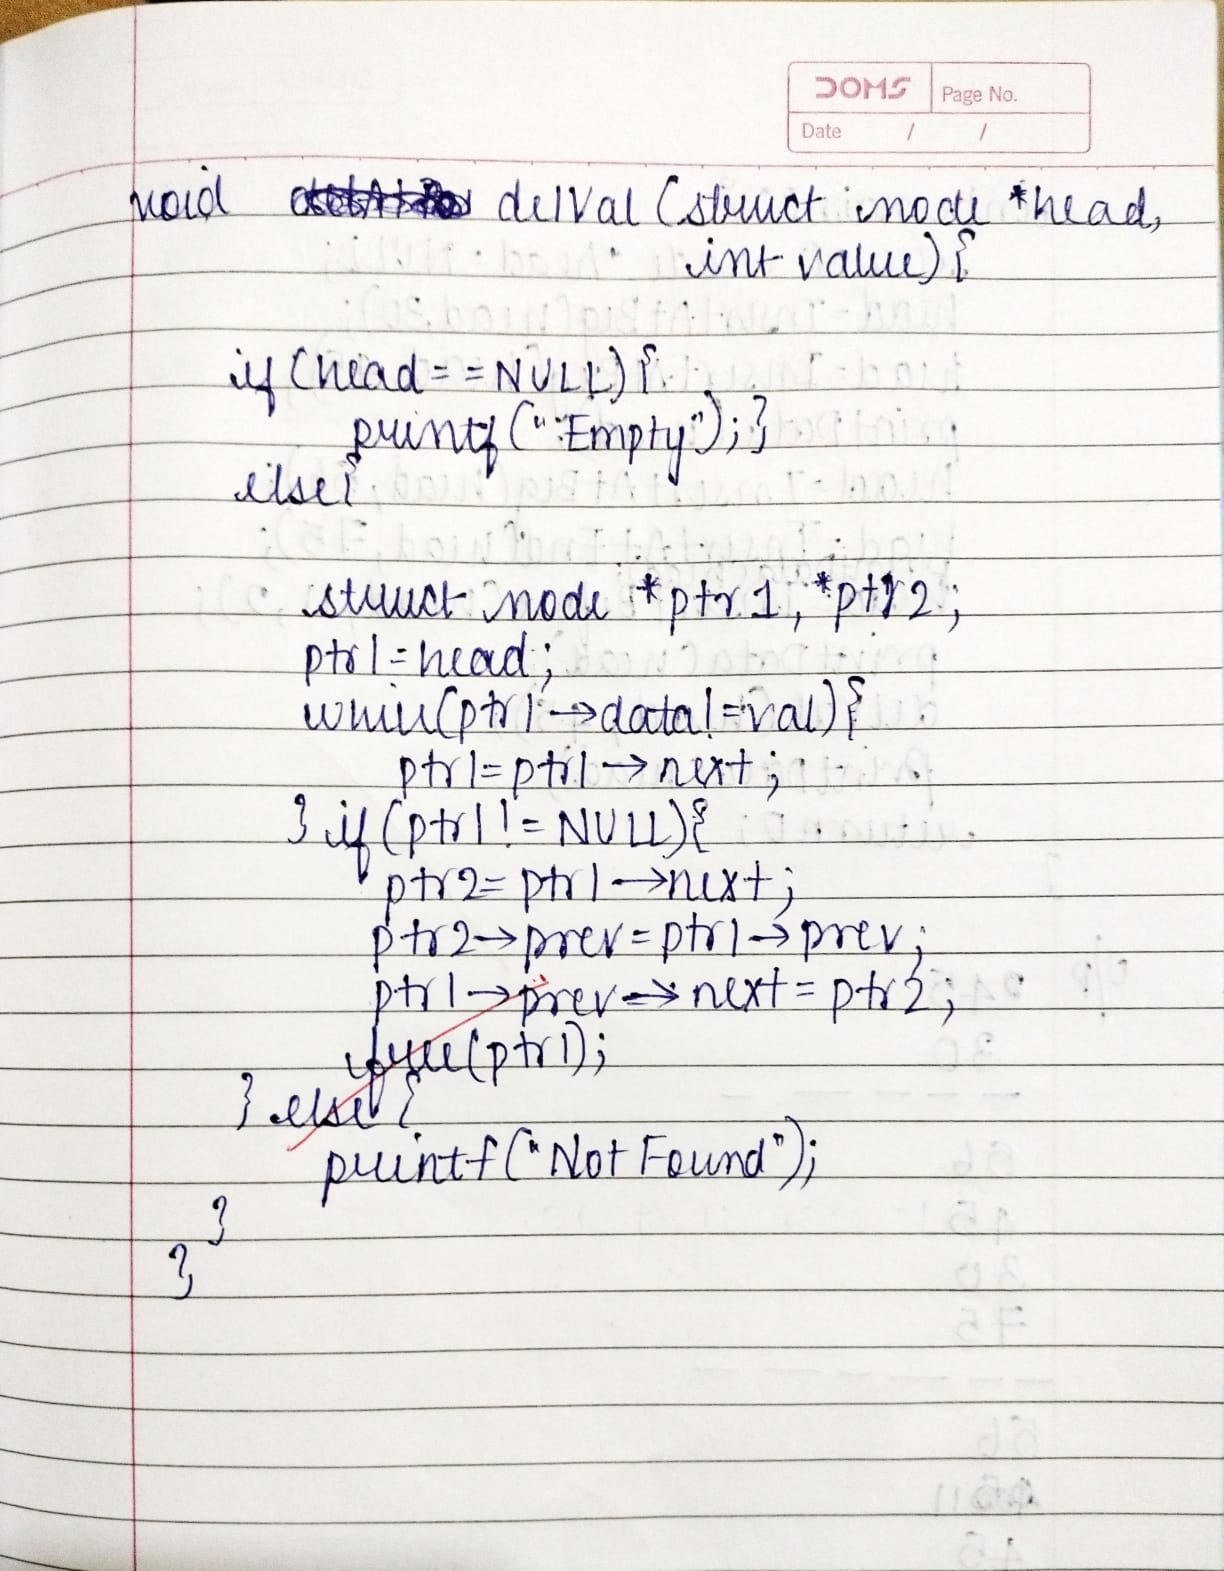 DOMS Page No.
Date / /
void delVal (struct node *head,
int value) {
if (head = = NULL) {
printf ("Empty"); }
else {
struct node *ptr1, *ptr2;
ptr1 = head;
while (ptr1 → data != val) {
ptr1 = ptr1 → next;
} if (ptr1 != NULL) {
ptr2 = ptr1 → next;
ptr2 → prev = ptr1 → prev;
ptr1 → prev → next = ptr2;
free (ptr1);
} else {
printf ("Not Found");
}
}